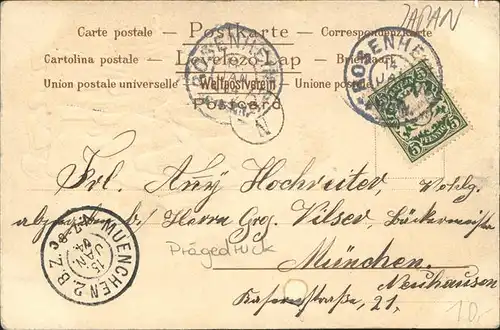 JAPAN
Carte postale — Postkarte — Correspondenzkarte
Cartolina postale — Levelező-Lap — Briefkaart
Union postale universelle Weltpostverein Unione postale
Postcard
ROSENHEIM
JAN
ROSENHE
JAN
N
5 PFENNIG 5
Frl. Anny Hochreiter,
abzugeben b/ Herrn Grg. Vilser, Bäckermeister
Prägedruck
München.
Neuhausen
Kasernstraße, 21.
MUENCHEN 2. B. Z.
15
JAN
04
10.-